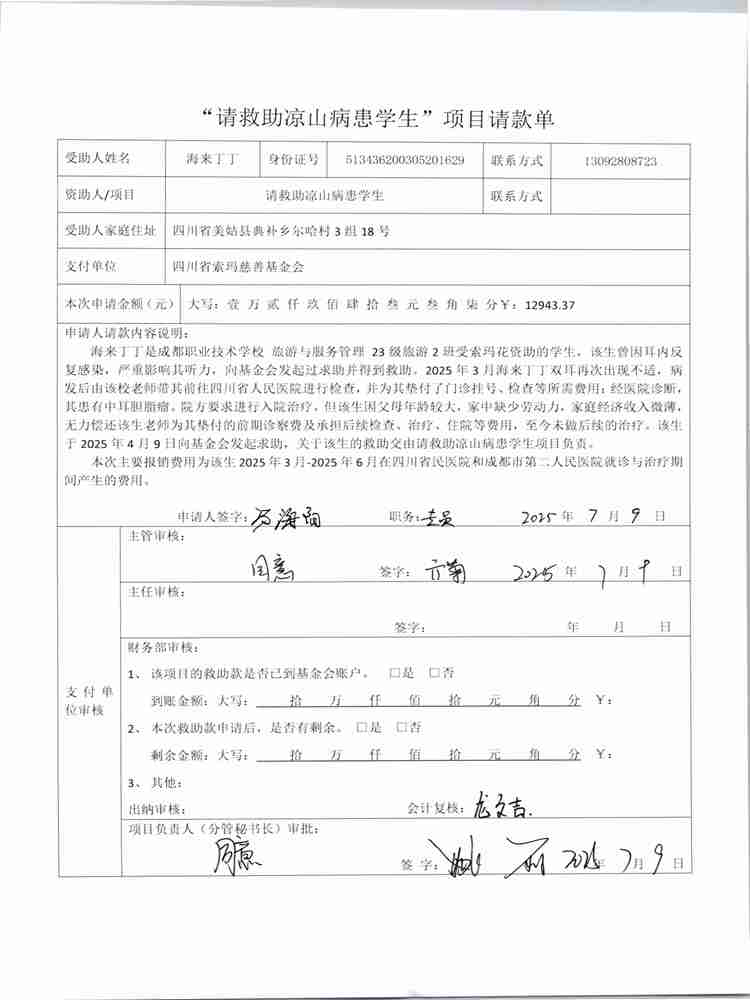 “请救助凉山病患学生”项目请款单
受助人姓名 海来丁丁 身份证号 513436200305201629 联系方式 13092808723
资助人/项目 请救助凉山病患学生 联系方式
受助人家庭住址 四川省美姑县典补乡尔哈村 3 组 18 号
支付单位 四川省索玛慈善基金会
本次申请金额（元） 大写：壹 万 贰 仟 玖 佰 肆 拾 叁 元 叁 角 柒 分￥：12943.37
申请人请款内容说明：
海来丁丁是成都职业技术学校 旅游与服务管理 23 级旅游 2 班受索玛花资助的学生，该生曾因耳内反
复感染，严重影响其听力，向基金会发起过求助并得到救助。2025 年 3 月海来丁丁双耳再次出现不适，病
发后由该校老师带其前往四川省人民医院进行检查，并为其垫付了门诊挂号、检查等所需费用；经医院诊断，
其患有中耳胆脂瘤。院方要求进行入院治疗。但该生因父母年龄较大，家中缺少劳动力，家庭经济收入微薄，
无力偿还该生老师为其垫付的前期诊察费及承担后续检查、治疗、住院等费用，至今未做后续的治疗。该生
于 2025 年 4 月 9 日向基金会发起求助，关于该生的救助交由请救助凉山病患学生项目负责。
本次主要报销费用为该生 2025 年 3 月-2025 年 6 月在四川省民医院和成都市第二人民医院就诊与治疗期
间产生的费用。
申请人签字： 职务： 2025 年 7 月 9 日
支 付 单
位审核
主管审核：
同意 签字： 2025 年 7 月 9 日
主任审核：
签字： 年 月 日
财务部审核：
1、 该项目的救助款是否已到基金会账户。 □是 □否
到账金额：大写： 拾 万 仟 佰 拾 元 角 分 ￥：
2、 本次救助款申请后，是否有剩余。 □是 □否
剩余金额：大写： 拾 万 仟 佰 拾 元 角 分 ￥：
3、 其他：
出纳审核： 会计复核：龙文吉.
项目负责人（分管秘书长）审批：
同意 签 字： 2025年 7月 9 日